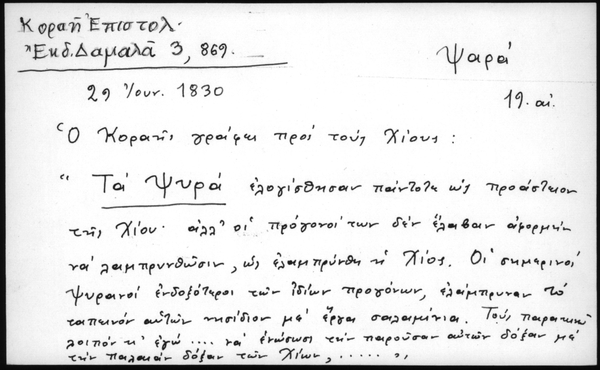 Κοραῆ Ἐπιστολ.
Ἐκδ. Δαμαλᾶ 3, 869.
Ψαρά
29 Ἰουν. 1830
19. αἰ.
Ὁ Κοραῆς γράφει πρός τούς Χίους :
" Τά Ψυρά ἐλογίσθησαν πάντοτε ὡς προάστειον
τῆς Χίου· ἀλλ' οἱ πρόγονοί των δέν ἔλαβαν ἀφορμήν
νά λαμπρυνθῶσιν, ὡς ἐλαμπρύνθη ἡ Χίος. Οἱ σημερινοί
Ψυριανοί ἐνδοξότεροι τῶν ἰδίων προγόνων, ἐλάμπρυναν τό
ταπεινόν αὐτῶν νησίδιον μέ ἔργα σαλαμίνια. Τούς παρακινῶ
λοιπόν κ' ἐγώ .... νά ἑνώσωσι τήν παροῦσαν αὐτῶν δόξαν μέ
τήν παλαιάν δόξαν τῶν Χίων, ..... "